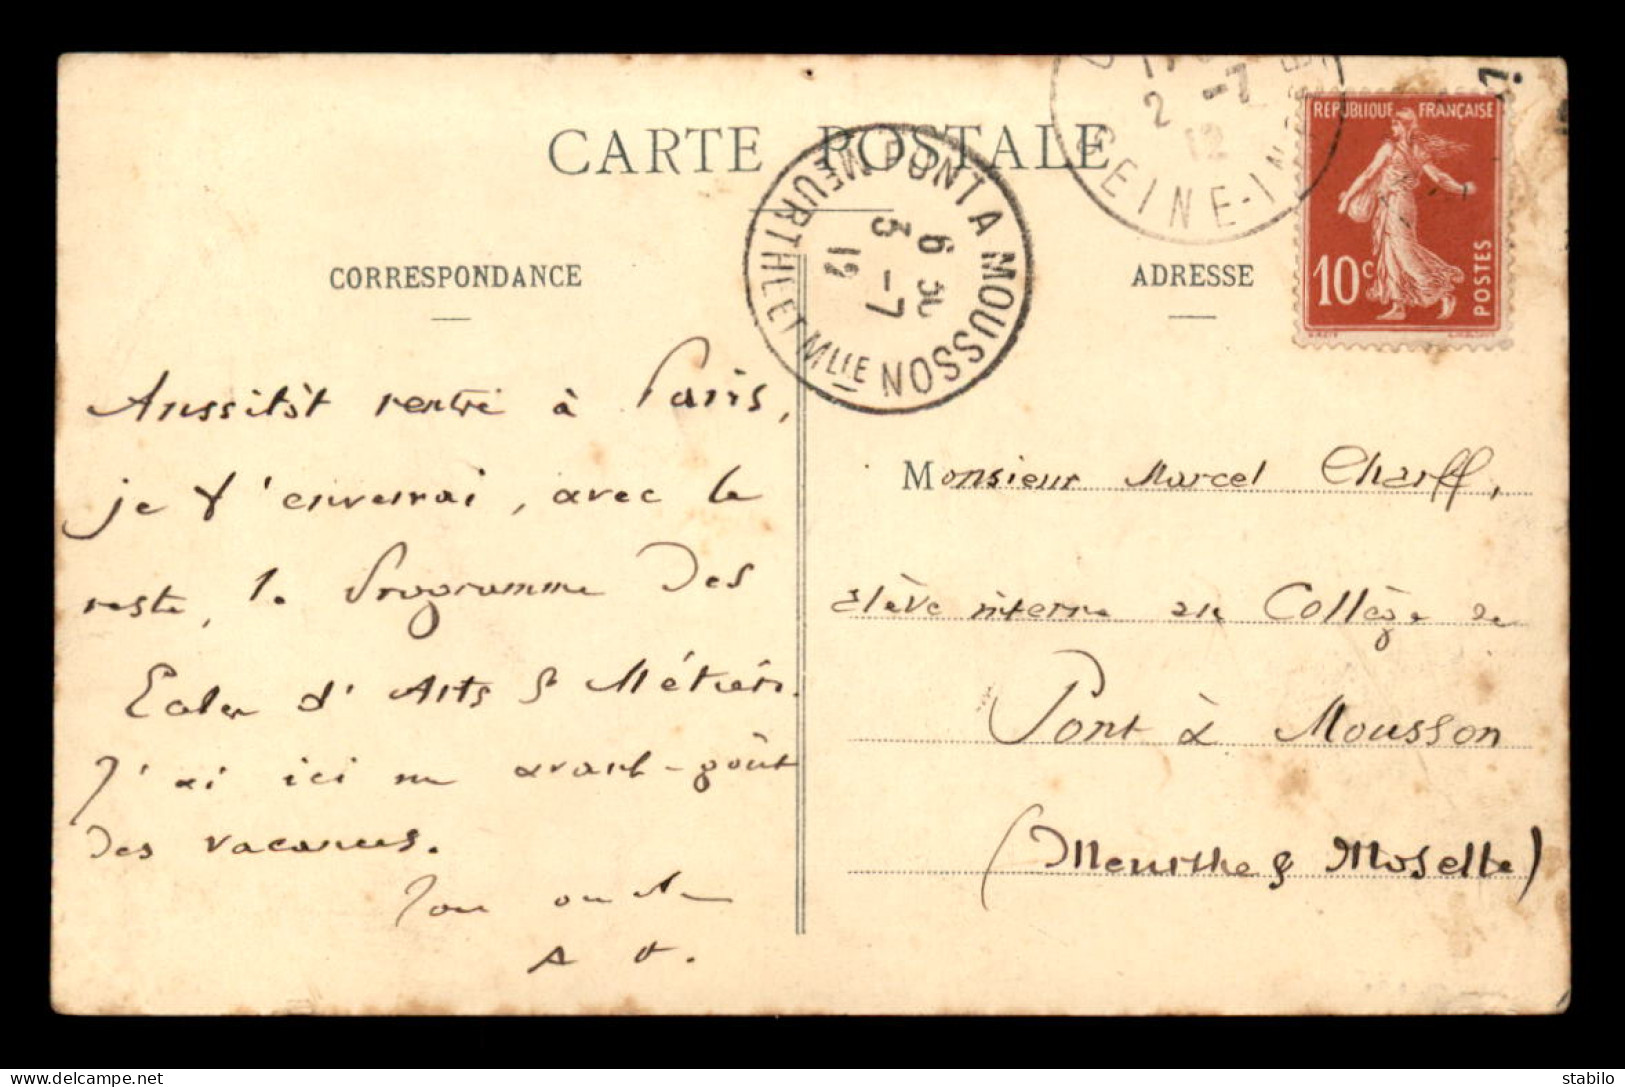 CARTE POSTALE
CORRESPONDANCE
Aussitôt rentré à Paris,
je t'enverrai, avec le
reste, le Programme des
Ecoles d'Arts & Métiers.
J'ai ici un avant-goût
des vacances.
Ton
A
PONT A MOUSSON
6
3 -7
12
MEURTHE ET MLLE
2 -7
12
SEINE-IN
REPUBLIQUE FRANÇAISE
10c
POSTES
ADRESSE
Monsieur Marcel Charff,
élève interne au Collège de
Pont à Mousson
(Meurthe & Moselle)
delcampe.net
stabilo